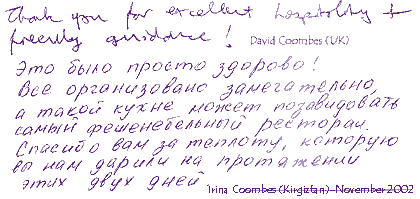 Thank you for excellent hospitality +
friendly guidance!
David Coombes (UK)
Это было просто здорово!
Все организовано замечательно,
а такой кухне может позавидовать
самый фешенебельный ресторан.
Спасибо вам за теплоту, которую
вы нам дарили на протяжении
этих двух дней
Irina Coombes (Kirgiztan)-November 2002